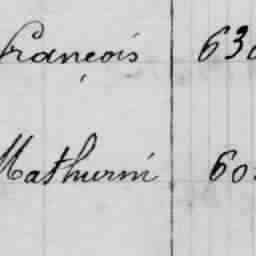 François 630
Mathurin 60